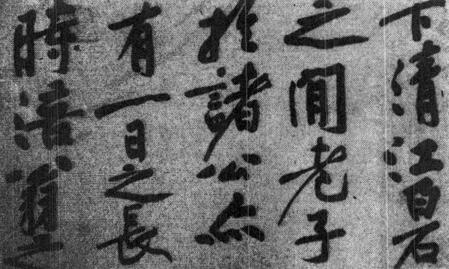 下清江白石
之閒老子
於諸公亦
有一日之長
時涪翁之